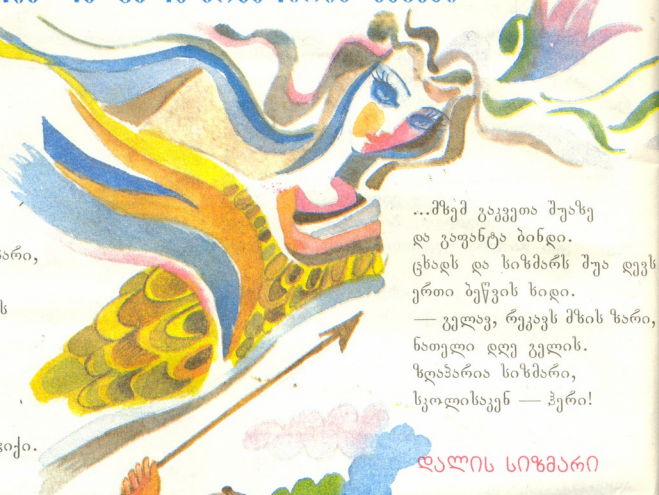 ...მზემ გაკვეთა შუაზე
და გაფანტა ბინდი.
ცხადს და სიზმარს შუა დევს
ერთი ბეწვის ხიდი.
— გელავ, რეკავს მზის ზარი,
ნათელი დღე გელის.
ზღაპარია სიზმარი,
სკოლისაკენ — ჰერი!
დალის სიზმარი